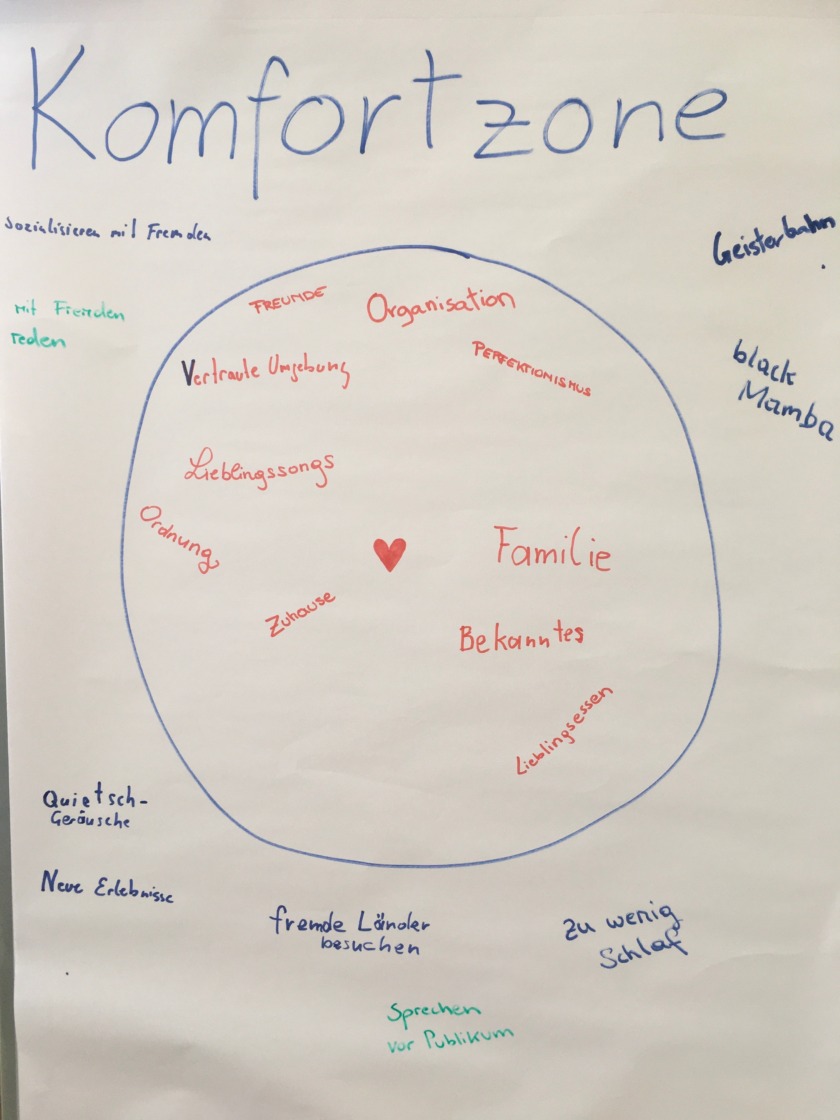 Komfortzone
Sozialisieren mit Fremden
Geisterbahn
mit Fremden
reden
FREUNDE
Organisation
PERFEKTIONISMUS
black
Mamba
Vertraute Umgebung
Lieblingssongs
Ordnung
Familie
Zuhause
Bekanntes
Lieblingsessen
Quietsch-
Geräusche
Neue Erlebnisse
fremde Länder
besuchen
zu wenig
Schlaf
Sprechen
vor Publikum